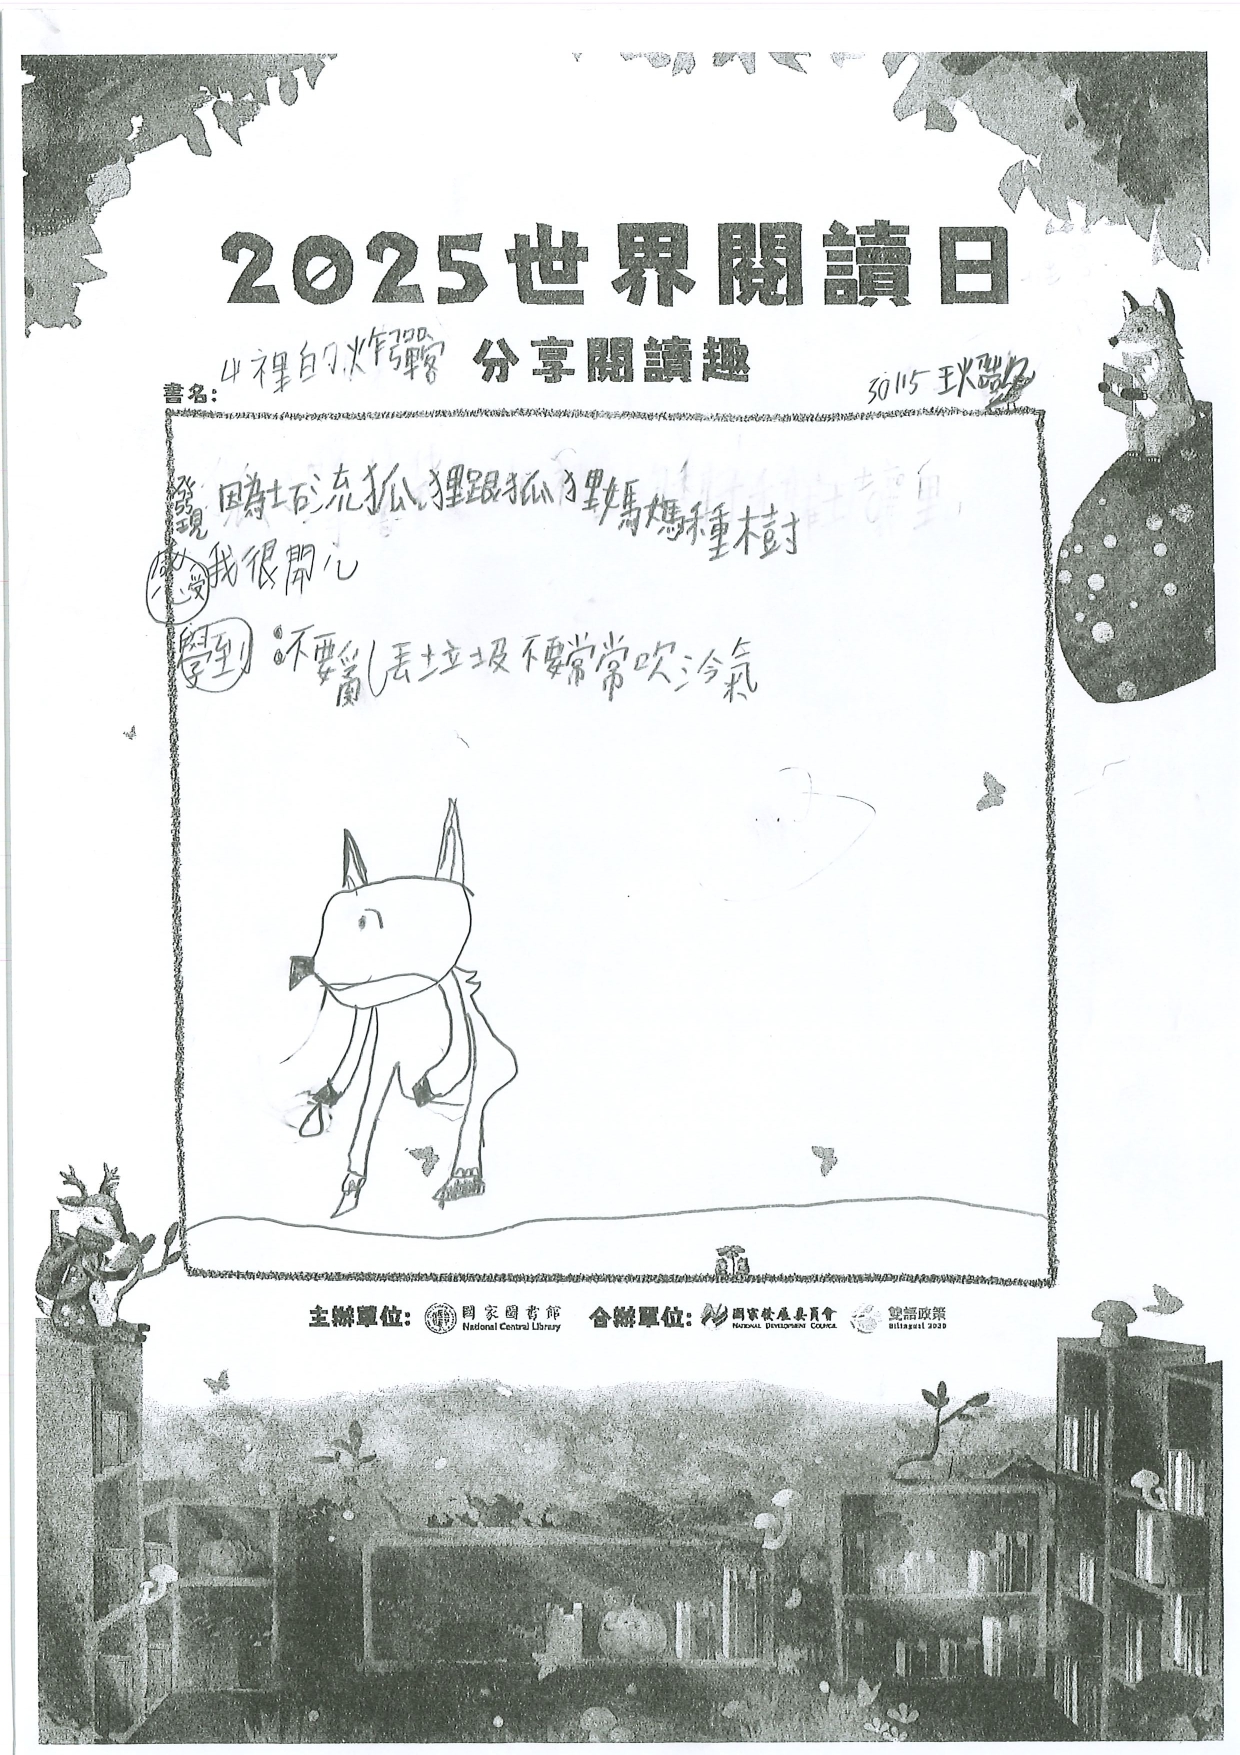 2025世界閱讀日
分享閱讀趣
書名:
裡的炸彈客
30115 王
發現 因為土石流狐狸跟狐狸媽媽種樹
感受 我很開心
學到:不要亂丟垃圾不要常常吹冷氣
主辦單位: 國家圖書館 National Central Library 合辦單位: 國家發展委員會 NATIONAL DEVELOPMENT COUNCIL 雙語政策 Bilingual 2030